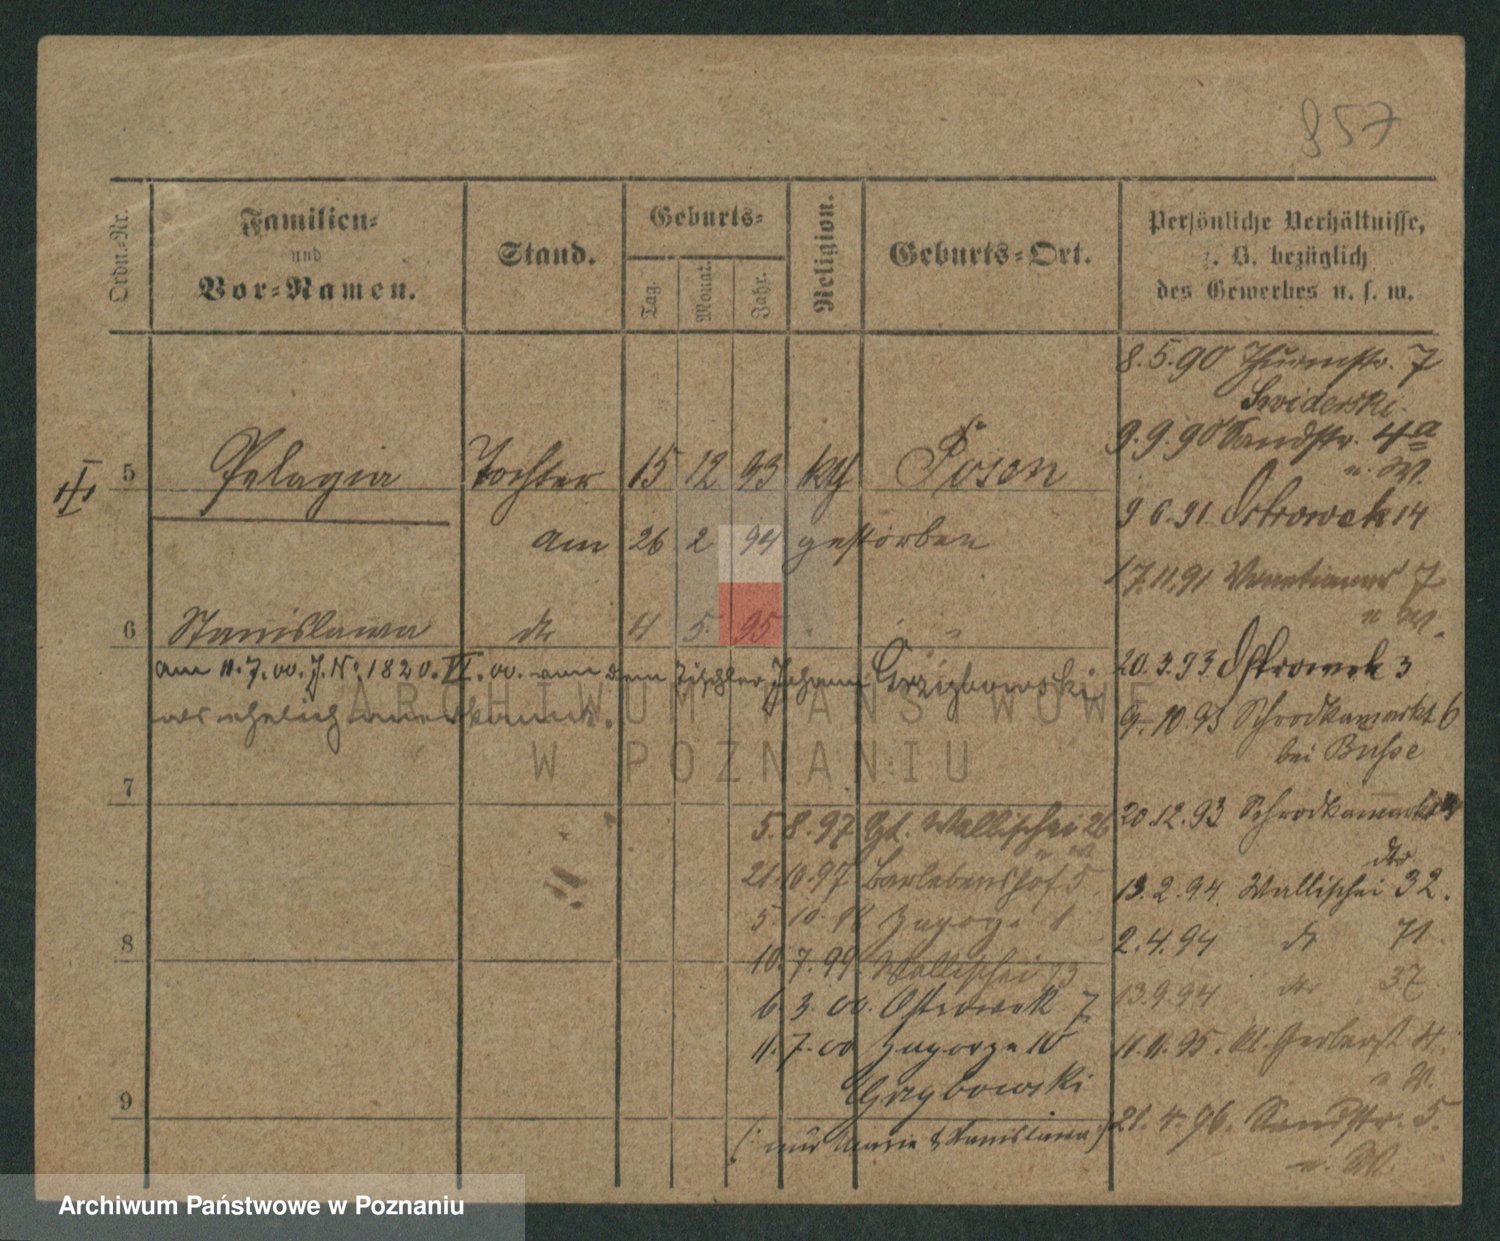 857
Ordn.=Nr.
Familien=
und
Vor=Namen.
Stand.
Geburts=
Tag.
Monat.
Jahr.
Religion.
Geburts=Ort.
Persönliche Verhältnisse,
z. B. bezüglich
des Gewerbes u. s. w.
III
5 Pelagia Tochter 15 12 93 kth Posen
am 26 2 94 gestorben
6 Stanislawa do 4 5. 95 " "
am 11.7.00. J.No. 1820. VI. 00. von dem Tischler Johann Grzybowski
als ehelich anerkannt.
7
8
9
5.8.97 Wallischei 26
21.10.97 Berlebenshof 5
5.10. Zagorze 1
10.7.99. Wallischei 73
6.3.00. Ostrowek 7
11.7.00 Zagorze 10
Grzybowski
(: nur Marie & Stanislawa :)
8.5.90 Thurmstr. 7
Swiderski
9.9.90 Sandstr. 4a
u. W.
9 6.91. Ostrowek 14
17.11.91 Venetianer 7
u W.
20.3.93 Ostrowek 3
9.10.93 Schrodkamarkt 6
bei Busse
20.12.93 Schrodkamarkt
do
13.2.94. Wallischei 32.
2.4.94 do 71.
13.9.94 do 37
11.11.95. kl. Gerberst 4.
u W.
21.4.96. Sandstr. 5.
u. W.
ARCHIWUM PAŃSTWOWE
W POZNANIU
Archiwum Państwowe w Poznaniu